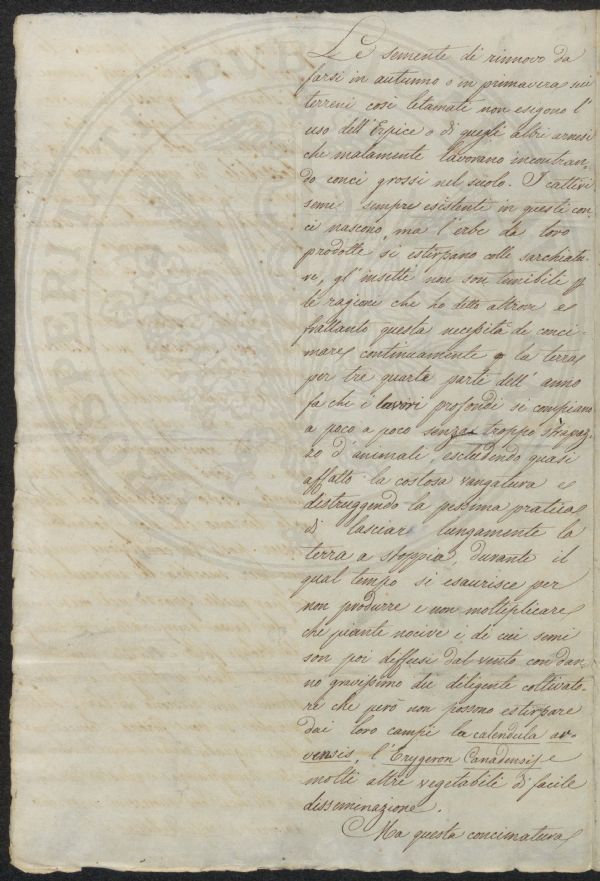 Le semente di rinnovo da
farsi in autunno o in primavera sui
terreni così letamati non esigono l'
uso dell'Erpice o di quegli altri arnesi
che malamente lavorano incontran-
do conci grossi nel suolo. I cattivi
semi sempre esistente in questi con-
ci nascono, ma l'erbe da loro
prodotte si estirpano colle sarchiatu-
re, gl'insetti non son temibili p
le ragioni che ho dette altrove e
frattanto questa necessità di conci-
mare continuamente la terra
per tre quarte parte dell'anno
fa che i lavori profondi si compiano
a poco a poco senza troppo strapaz-
zo d'animale, escludendo quasi
affatto la costosa vangatura e
distruggendo la pessima pratica
di lasciar lungamente la
terra a stoppia, durante il
qual tempo si esaurisce per
non produrre e non moltiplicare
che piante nocive i di cui semi
son poi diffusi dal vento con dan-
no gravissimo dei diligente coltivato-
re che però non possono estirpare
dai loro campi la calendula ar-
vensis, l'Erygeron Canadensis e
molti altri vegetabili di facile
disseminazione.
Ma questa concimatura